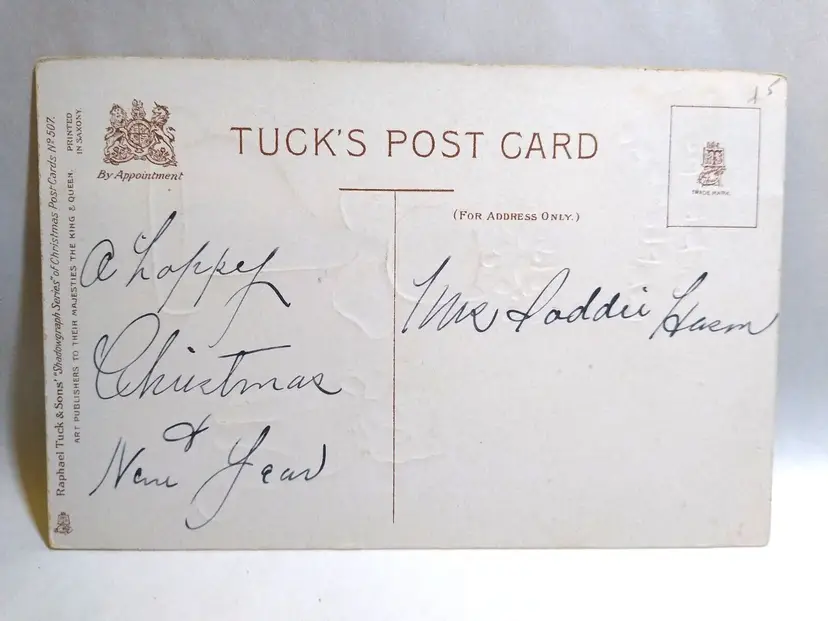 Raphael Tuck & Sons' "Shadowgraph Series" of Christmas Post Cards Nº 507.
ART PUBLISHERS TO THEIR MAJESTIES THE KING & QUEEN.
PRINTED
IN SAXONY.
By Appointment
TUCK'S POST CARD
(FOR ADDRESS ONLY.)
TRADE MARK
A happy
Christmas
&
New Year
Mrs